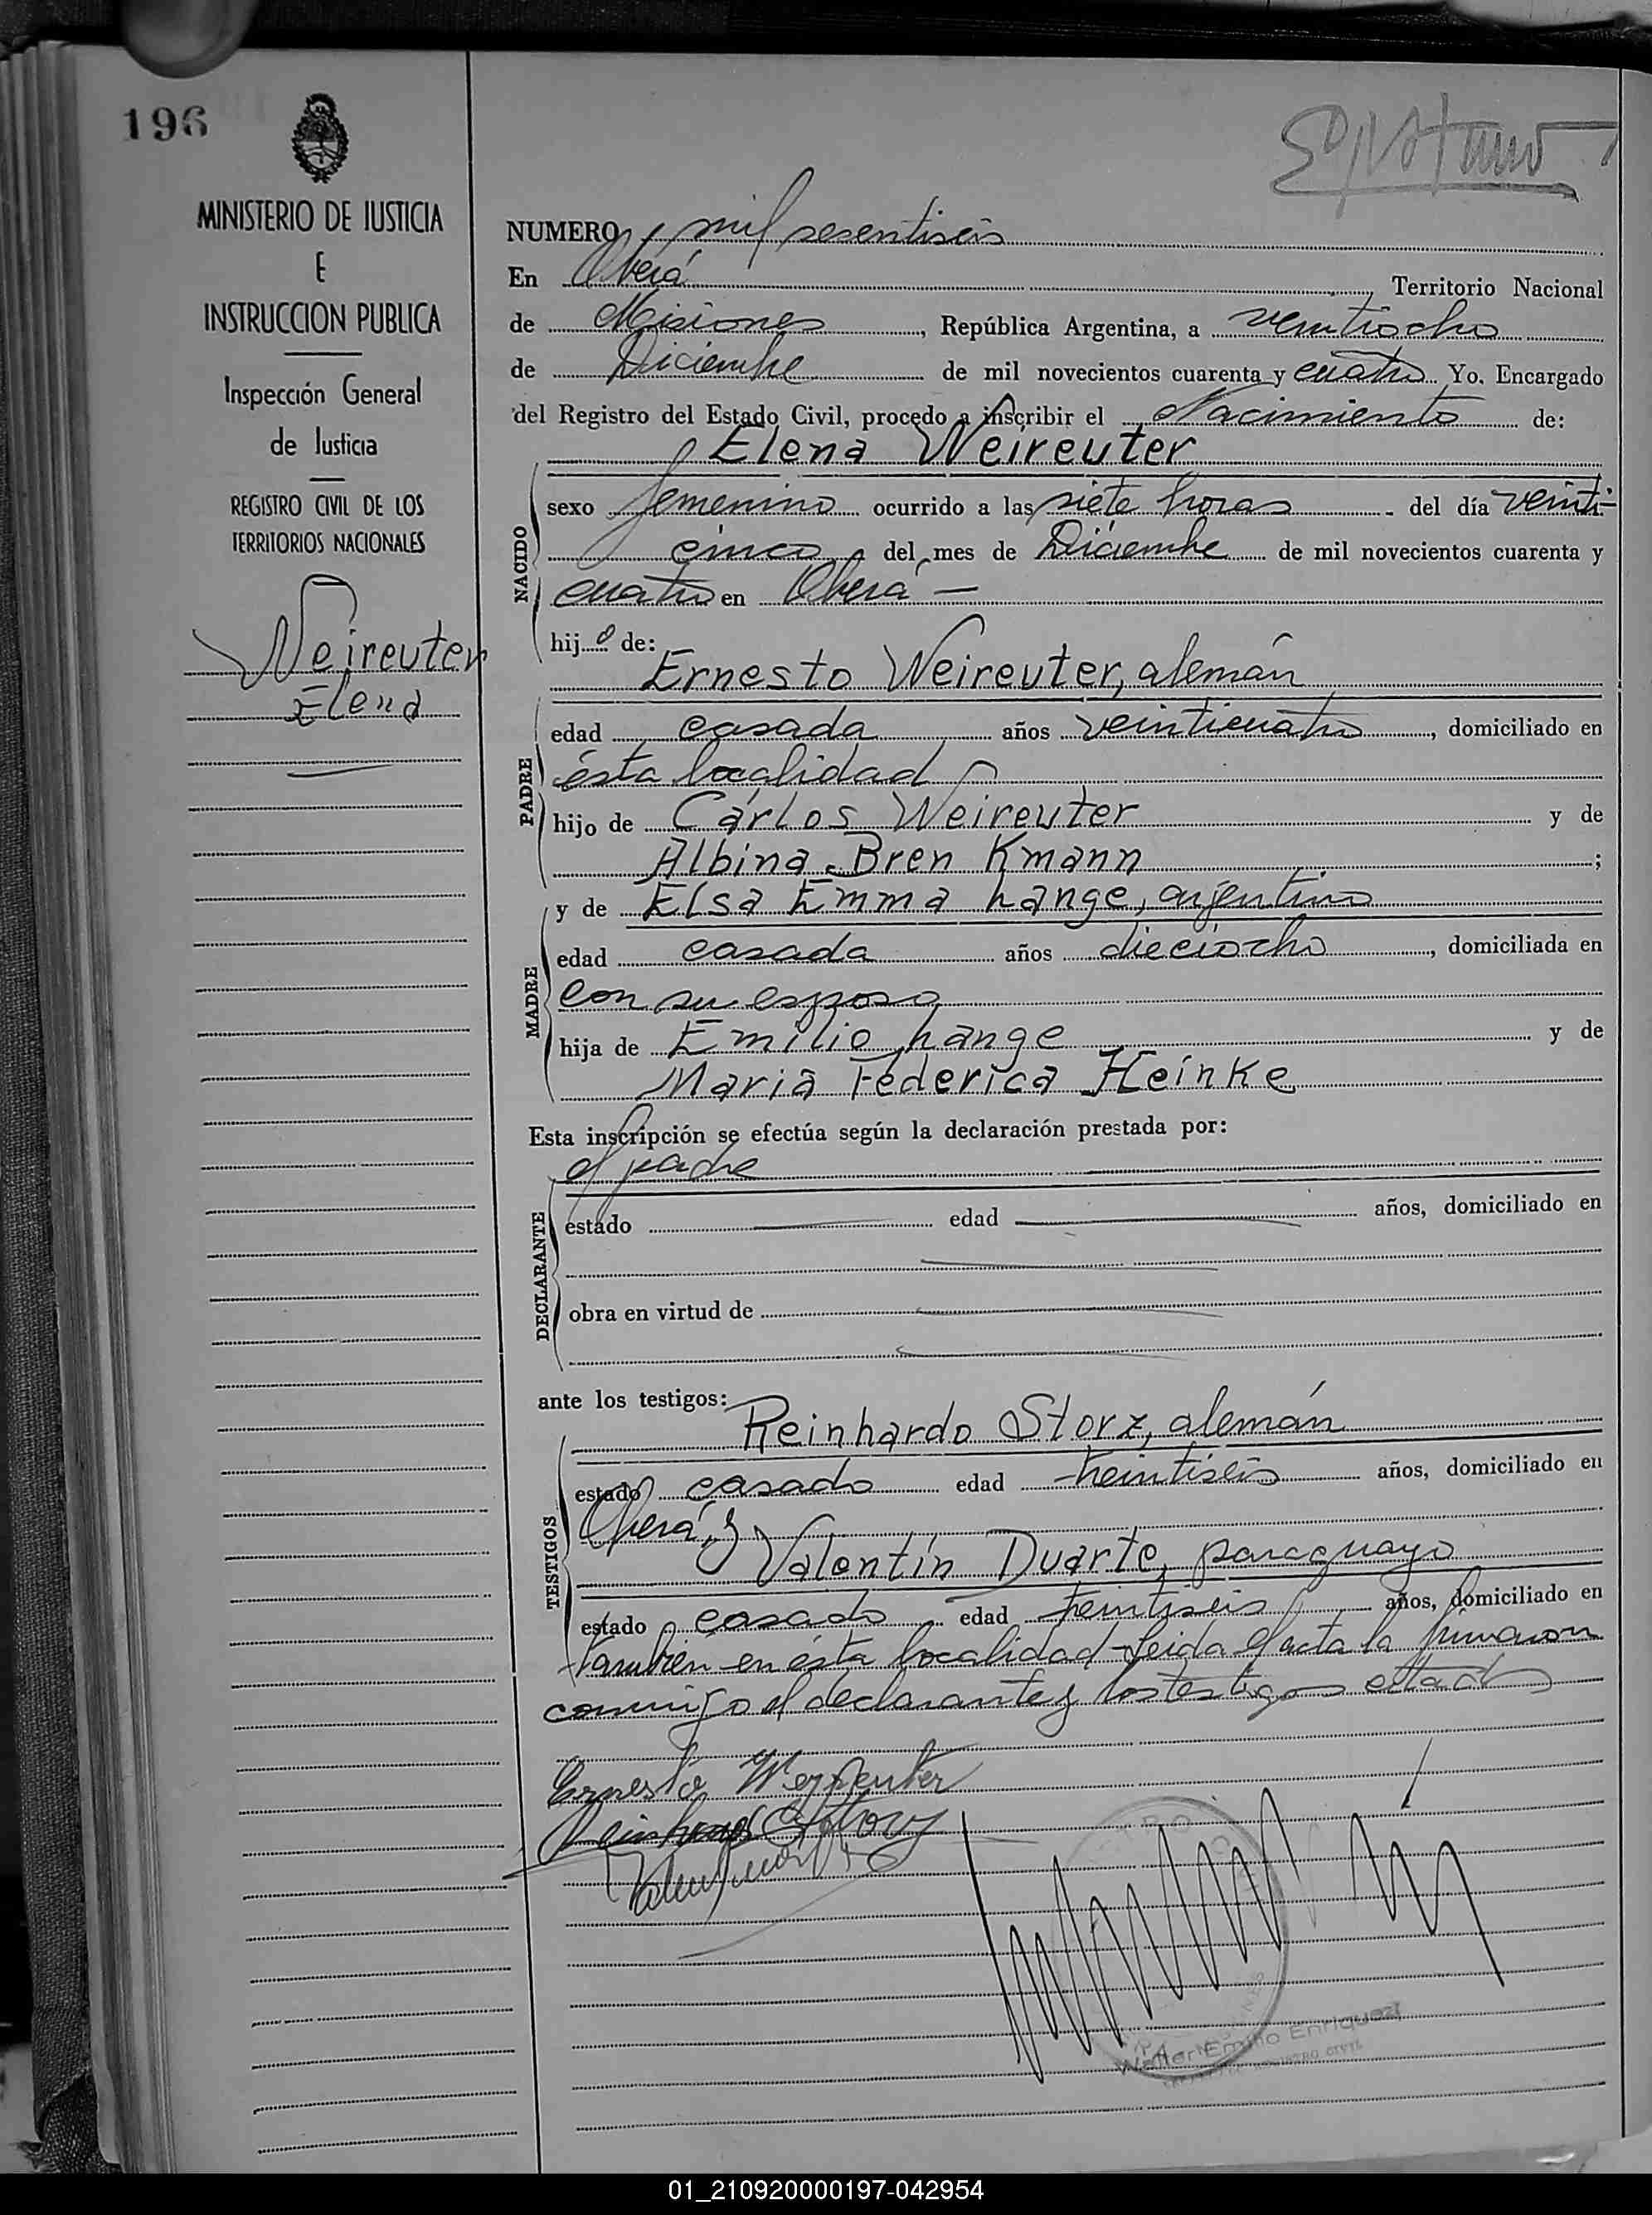 196
MINISTERIO DE JUSTICIA
E
INSTRUCCION PUBLICA
Inspección General
de Justicia
REGISTRO CIVIL DE LOS
TERRITORIOS NACIONALES
Weireuter
Elena
NUMERO mil sesentiseis
En Oberá Territorio Nacional
de Misiones, República Argentina, a veintiocho
de Diciembre de mil novecientos cuarenta y cuatro Yo. Encargado
del Registro del Estado Civil, procedo a inscribir el Nacimiento de:
Elena Weireuter
NACIDO
sexo femenino ocurrido a las siete horas del día veinti-
cinco del mes de Diciembre de mil novecientos cuarenta y
cuatro en Oberá —
hij de:
Ernesto Weireuter, alemán
PADRE
edad casada años veinticuatro, domiciliado en
ésta localidad
hijo de Cárlos Weireuter y de
Albina Bren Kmann ;
MADRE
y de Elsa Emma Lange, argentina
edad casada años dieciocho, domiciliada en
con su esposo
hija de Emilio Lange y de
Maria Federica Heinke
Esta inscripción se efectúa según la declaración prestada por:
el padre
DECLARANTE
estado edad años, domiciliado en
obra en virtud de
ante los testigos:
Reinhardo Storz, alemán
TESTIGOS
estado casado edad treintiseis años, domiciliado en
Oberá y
Valentín Duarte, paraguayo
estado casado edad treintiseis años, domiciliado en
también en ésta localidad - Leida el acta la firmaron
conmigo el declarante y los testigos citados
Ernesto Weyreuter
Walter Emilio Enriquez
REGISTRO CIVIL
01_210920000197-042954